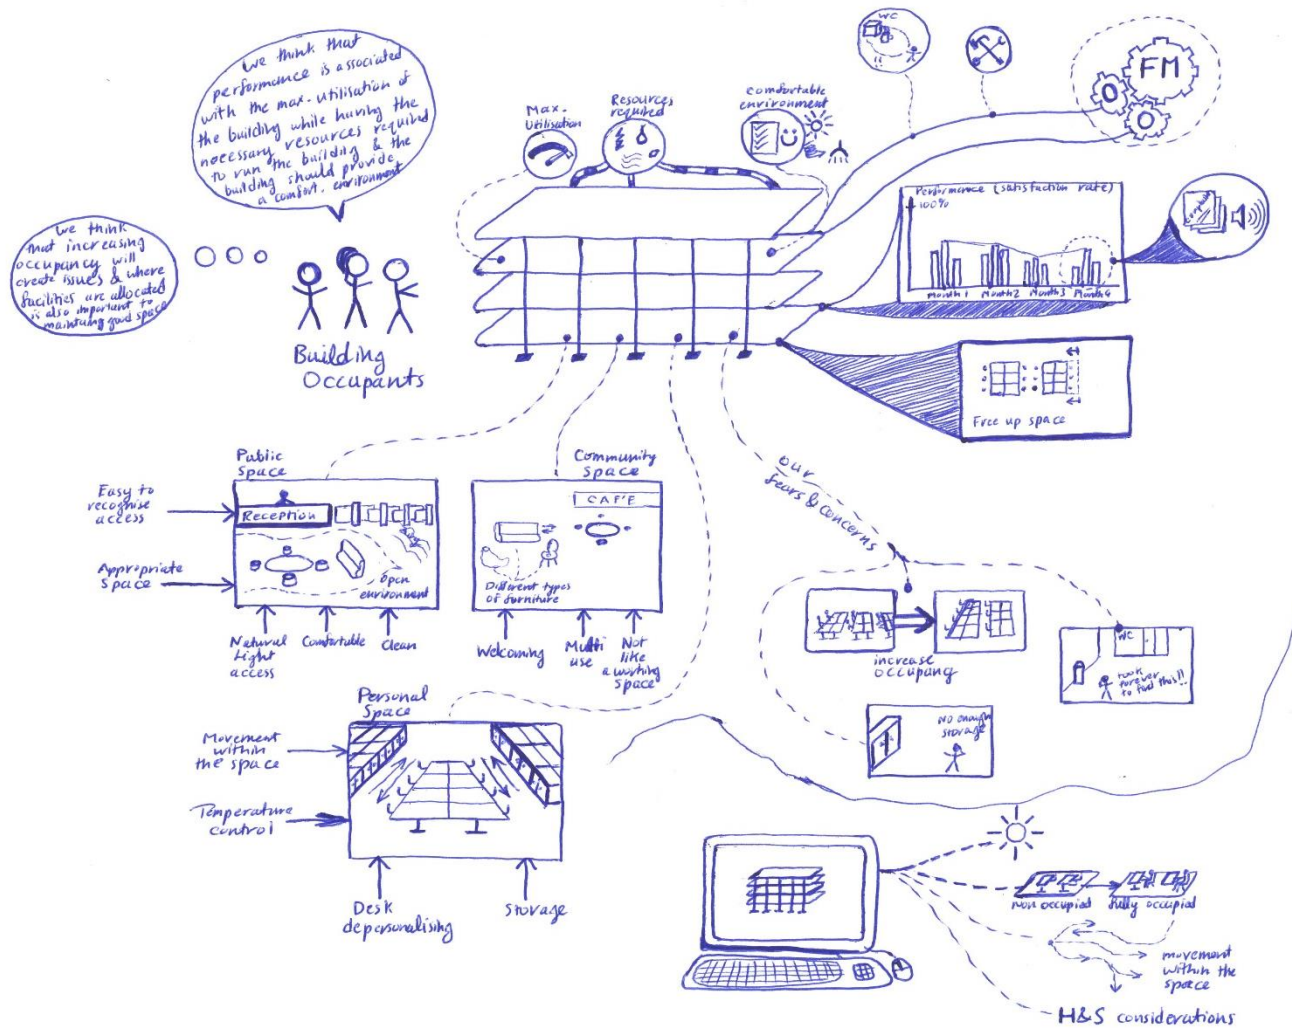 we think that
performance is associated
with the max. utilisation of
the building while having the
necessary resources required
to run the building & the
building should provide
a comfort. environment
we think
that increasing
occupancy will
create issues & where
facilities are allocated
is also important to
maintaing good space
Building
Occupants
Max.
Utilisation
Resources
required
comfortable
environment
WC
FM
Performance (satisfaction rate)
100%
Month 1
Month 2
Month 3
Month 4
Free up space
Public
Space
Easy to
recognise
access
Reception
Appropriate
Space
open
environment
Natural
Light
access
Comfortable
Clean
Community
Space
CAF'E
Different types
of furniture
Welcoming
Multi
use
Not
like
a working
space
our
fears & concerns
increase
occupancy
WC
took
forever
to find this!!
No enough
storage
Personal
Space
Movement
within
the space
Temperature
control
Desk
depersonalising
Storage
Non occupied
fully occupied
movement
within the
space
H&S considerations